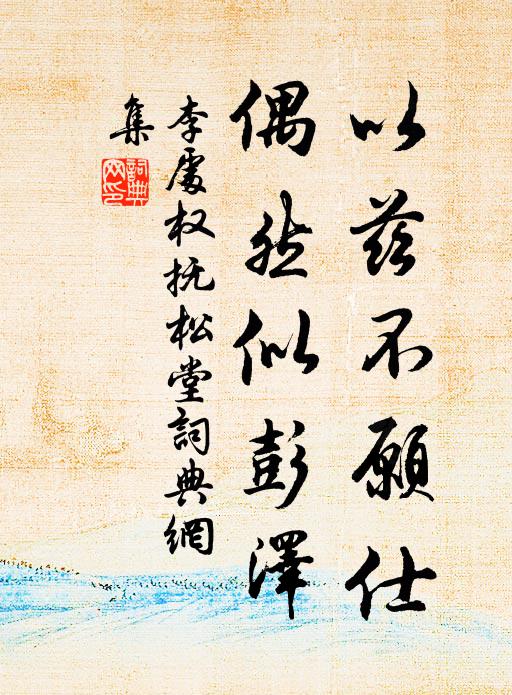 以茲不願仕
偶然似彭澤
李處权抚松堂詞典網
集
詞典網印